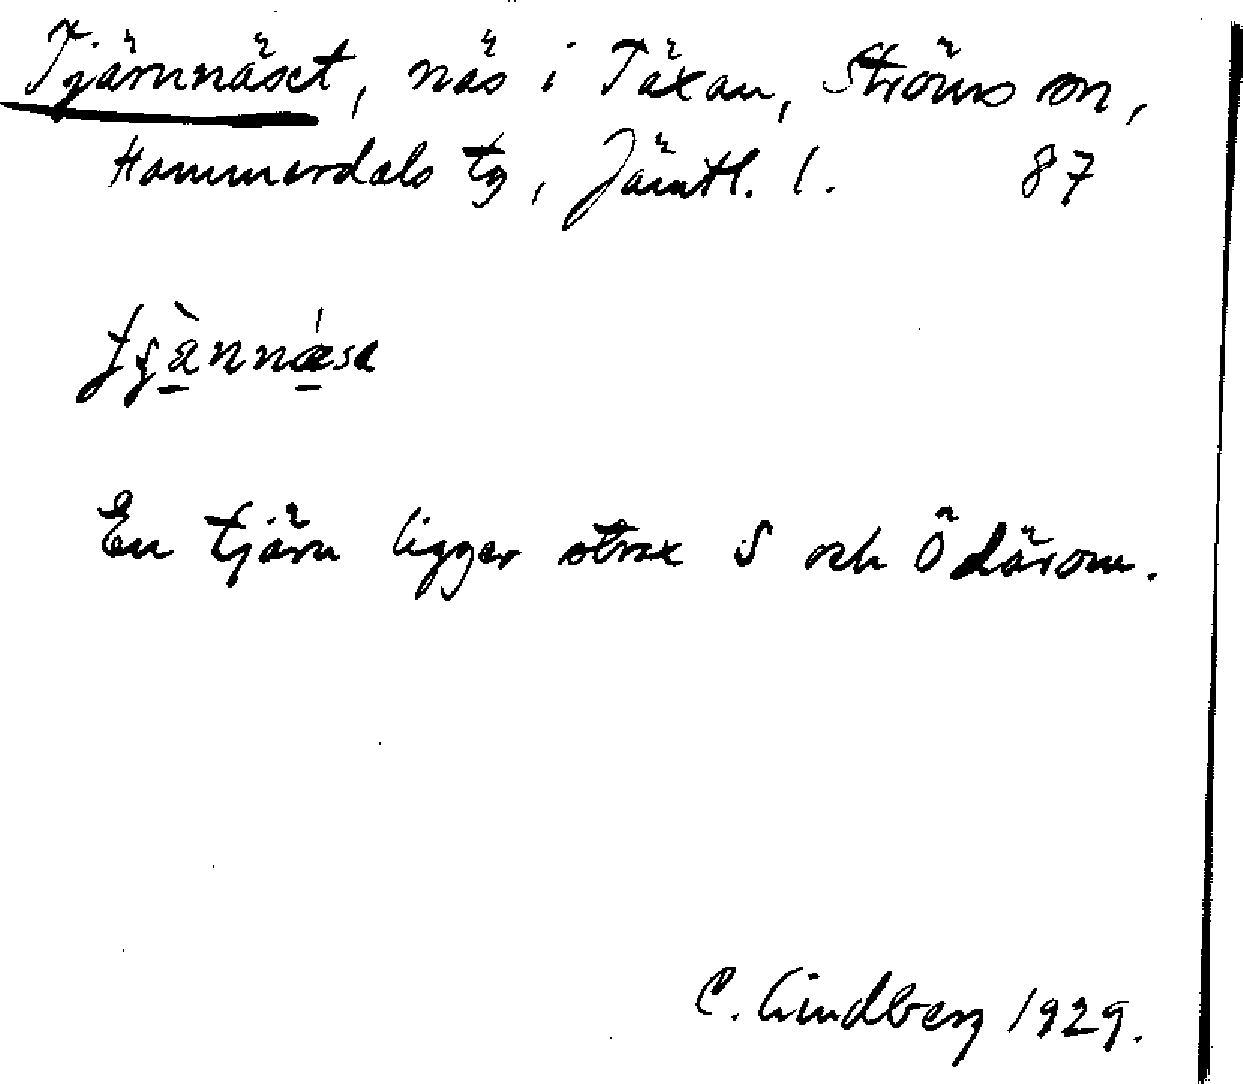 Tjärnnäset, näs i Täxan, Ströms sn,
Hammerdals tg, Jämtl. l. 87
En tjärn ligger strax S och Ö därom.
C. Lindberg 1929.